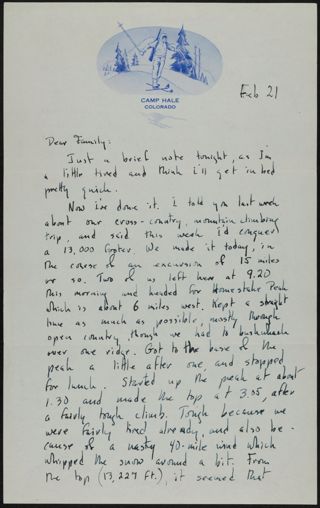 CAMP HALE
COLORADO
Feb 21
Dear Family:
Just a brief note tonight, as I'm
a little tired and think I'll get in bed
pretty quick.
Now I've done it. I told you last week
about our cross-country, mountain climbing
trip, and said this week I'd conquer
a 13,000 footer. We made it today, in
the course of an excursion of 15 miles
or so. Two of us left here at 9.20
this morning and headed for Homestake Peak
which is about 6 miles west. Kept a straight
line as much as possible, mostly through
open country, though we had to bushwhack
over one ridge. Got to the base of the
peak a little after one, and stopped
for lunch. Started up the peak at about
1.30 and made the top at 3.05, after
a fairly tough climb. Tough because we
were fairly tired already, and also be-
cause of a nasty 40-mile wind which
whipped the snow around a bit. From
the top (13,227 ft.), it seemed that